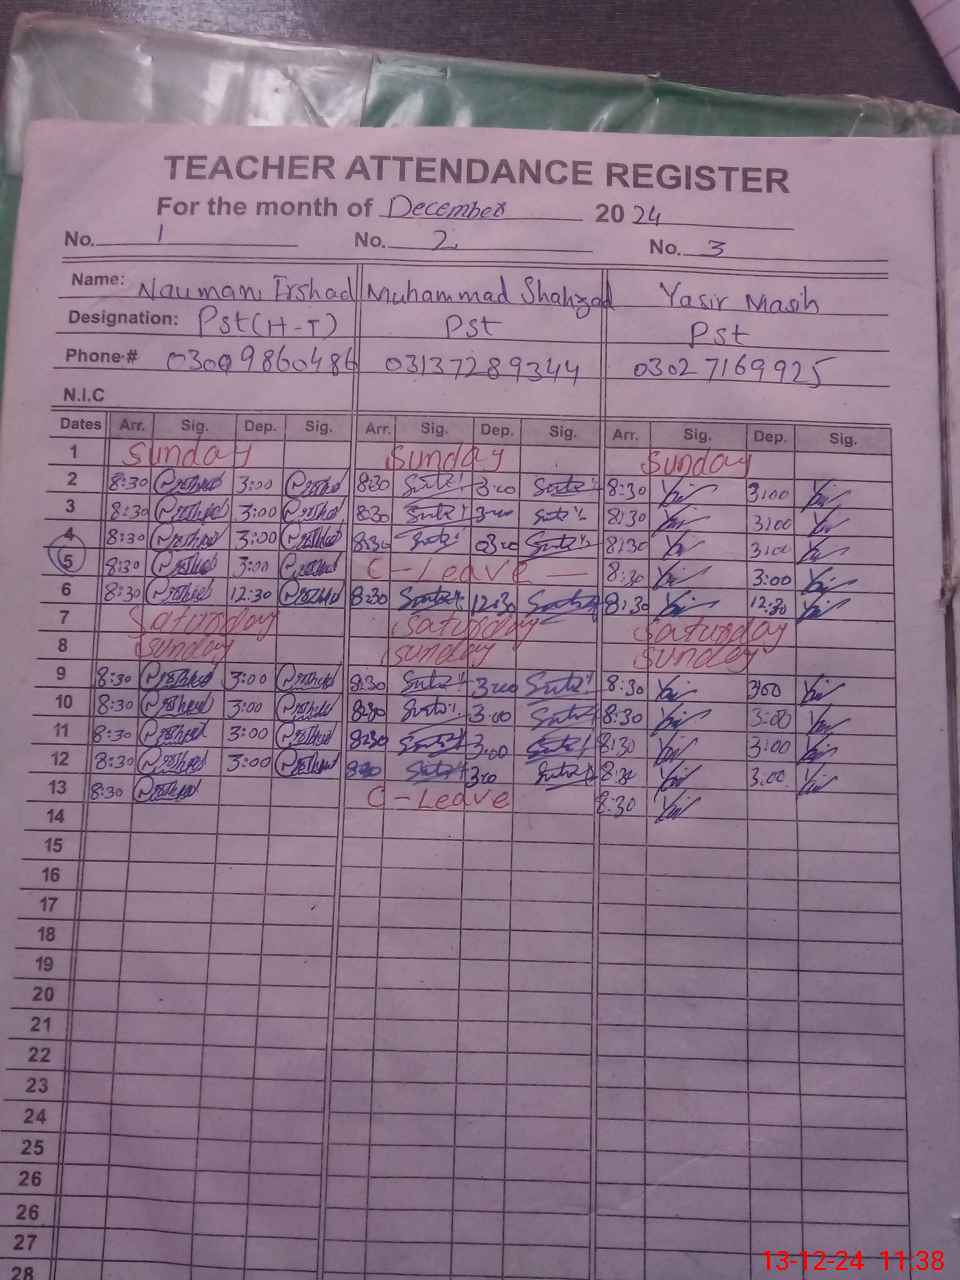 TEACHER ATTENDANCE REGISTER
For the month of December 20 24
No. 1 No. 2 No. 3
Name: Nauman Irshad Muhammad Shahzad Yasir Masih
Designation: Pst(H-T) Pst Pst
Phone # 03009860486 03137289344 03027169925
N.I.C
Dates Arr. Sig. Dep. Sig. Arr. Sig. Dep. Sig. Arr. Sig. Dep. Sig.
1 Sunday Sunday Sunday
2 8:30 3:00 8:30 3:00 8:30 3:00
3 8:30 3:00 8:30 3:00 8:30 3:00
4 8:30 3:00 8:30 3:00 8:30 3:00
5 8:30 3:00 C-Leave 8:30 3:00
6 8:30 12:30 8:30 12:30 8:30 12:30
7 Saturday Saturday Saturday
8 Sunday Sunday Sunday
9 8:30 3:00 8:30 3:00 8:30 3:00
10 8:30 3:00 8:30 3:00 8:30 3:00
11 8:30 3:00 8:30 3:00 8:30 3:00
12 8:30 3:00 8:30 3:00 8:30 3:00
13 8:30 C-Leave 8:30
14
15
16
17
18
19
20
21
22
23
24
25
26
26
27
28
13-12-24 11:38